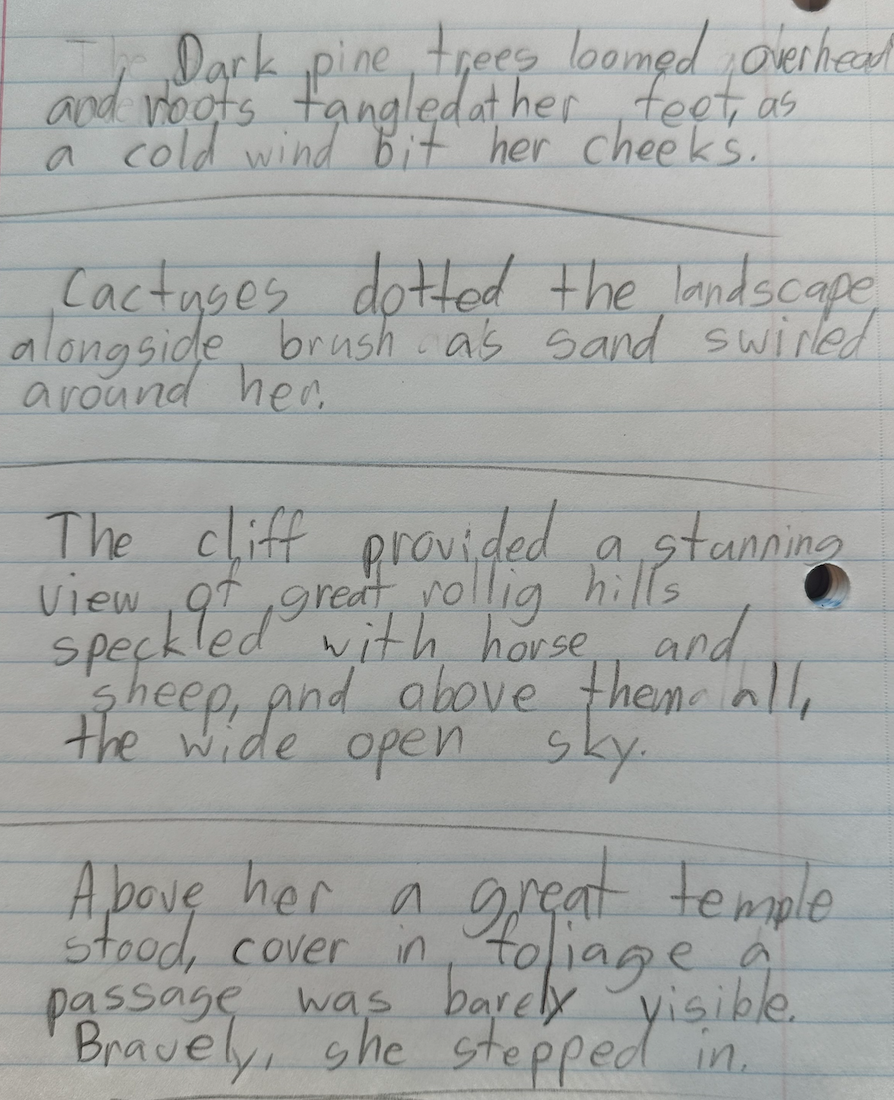 Dark pine trees loomed overhead
and roots tangled at her feet, as
a cold wind bit her cheeks.
Cactuses dotted the landscape
alongside brush as sand swirled
around her.
The cliff provided a stunning
view of great rollig hills
speckled with horse and
sheep, and above them all,
the wide open sky.
Above her a great temple
stood, cover in foliage a
passage was barely visible.
Bravely, she stepped in.